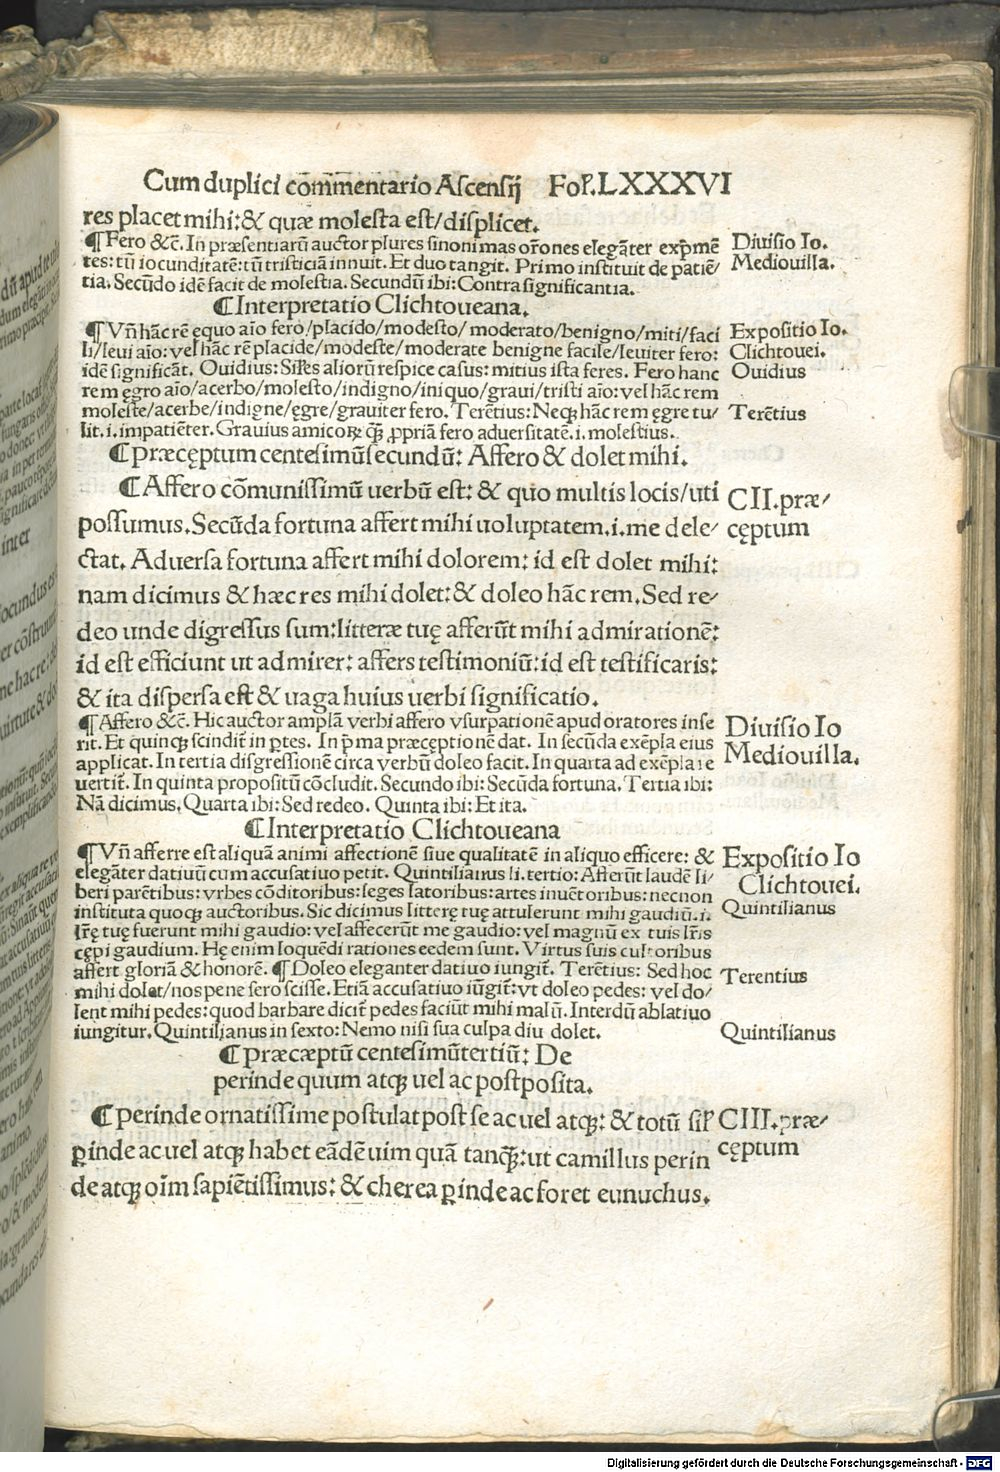 Cum duplici cōm̄entario Ascensij Fol̕.LXXXVI
res placet mihi:& quæ molesta est/displicet.
¶Fero &c̄. In præsentiarū auctor plures sinonimas or̄ones elegāter exp̄mē
tes: tū iocunditatē: tū tristiciā innuit. Et duo tangit. Primo instituit de patiē/
tia. Secūdo idē facit de molestia. Secundū ibi: Contra significantia.
Diuisio Io.
Mediouilla.
¶Interpretatio Clichtoueana.
¶Vn̄ hāc rē ęquo aīo fero/placido/modesto/ moderato/benigno/miti/faci
li/leui aīo: vel hāc rē placide/modeste/moderate benigne facile/leuiter fero:
idē significāt. Ouidius: Sil̕es aliorū respice casus: mitius ista feres. Fero hanc
rem ęgro aīo/acerbo/molesto/indigno/iniquo/graui/tristi aīo: vel hāc rem
moleste/acerbe/indigne/ęgre/grauiter fero. Terētius: Neqꝫ hāc rem ęgre tu/
lit.i.impatiēter. Grauius amicoꝝ qꝫ̄ ꝓpriā fero aduersitatē.i.molestius.
Expositio Io.
Clichtouei.
Ouidius
Terētius
¶præcęptum centesimūsecundū: Affero & dolet mihi.
¶Affero cōmunissimū uerbū est: & quo multis locis/uti
possumus.Secūda fortuna affert mihi uoluptatem.i.me dele/
ctat. Aduersa fortuna affert mihi dolorem: id est dolet mihi:
nam dicimus & hæc res mihi dolet: & doleo hāc rem. Sed re/
deo unde digressus sum:litteræ tuę afferūt mihi admirationē:
id est efficiunt ut admirer: affers testimoniū: id est testificaris:
& ita dispersa est & uaga huius uerbi significatio.
CII.præ/
cęptum
¶Affero &c̄. Hic auctor amplā verbi affero vsurpationē apud oratores inse
rit. Et quinqꝫ scindit̄ in ꝑtes. In p̄ma præcęptionē dat. In secūda exēpla eius
applicat. In tertia disgressionē circa verbū doleo facit. In quarta ad exēpla re
uertit̄. In quinta propositū cōcludit. Secundo ibi: Secūda fortuna. Tertia ibi:
Nā dicimus. Quarta ibi: Sed redeo. Quinta ibi: Et ita.
Diuisio Io
Mediouilla.
¶Interpretatio Clichtoueana
¶Vn̄ afferre est aliquā animi affectionē siue qualitatē in aliquo efficere: &
elegāter datiuū cum accusatiuo petit. Quintilianus li. tertio: Afferūt laudē li/
beri parētibus: vrbes cōditoribus: leges latoribus: artes inuētoribus: necnon
instituta quoqꝫ auctoribus. Sic dicimus litterę tuę attulerunt mihi gaudiū.i.
lr̄ę tuę fuerunt mihi gaudio: vel affecerūt me gaudio: vel magnū ex tuis lr̄is
cępi gaudium. Hę enim loquēdi rationes eedem sunt. Virtus suis cultoribus
affert gloriā & honorē. ¶Doleo eleganter datiuo iungit̄. Terētius: Sed hoc
mihi dolet/nos pene sero scisse. Etiā accusatiuo iūgit̄: vt doleo pedes: vel do/
lent mihi pedes: quod barbare dicit̄ pedes faciūt mihi malū. Interdū ablatiuo
iungitur. Quintilianus in sexto: Nemo nisi sua culpa diu dolet.
Expositio Io
Clichtouei.
Quintilianus
Terentius
Quintilianus
¶præcæptū centesimūtertiū: De
perinde quum atqꝫ uel ac postposita.
¶perinde ornatissime postulat post se ac uel atqꝫ: & totū sil̕
ꝑinde ac uel atqꝫ habet eādē uim quā tanqꝫ̄: ut camillus perin
de atqꝫ oīm sapiētissimus: & cherea ꝑinde ac foret eunuchus.
CIII.præ/
cęptum
Digitalisierung gefördert durch die Deutsche Forschungsgemeinschaft - DFG